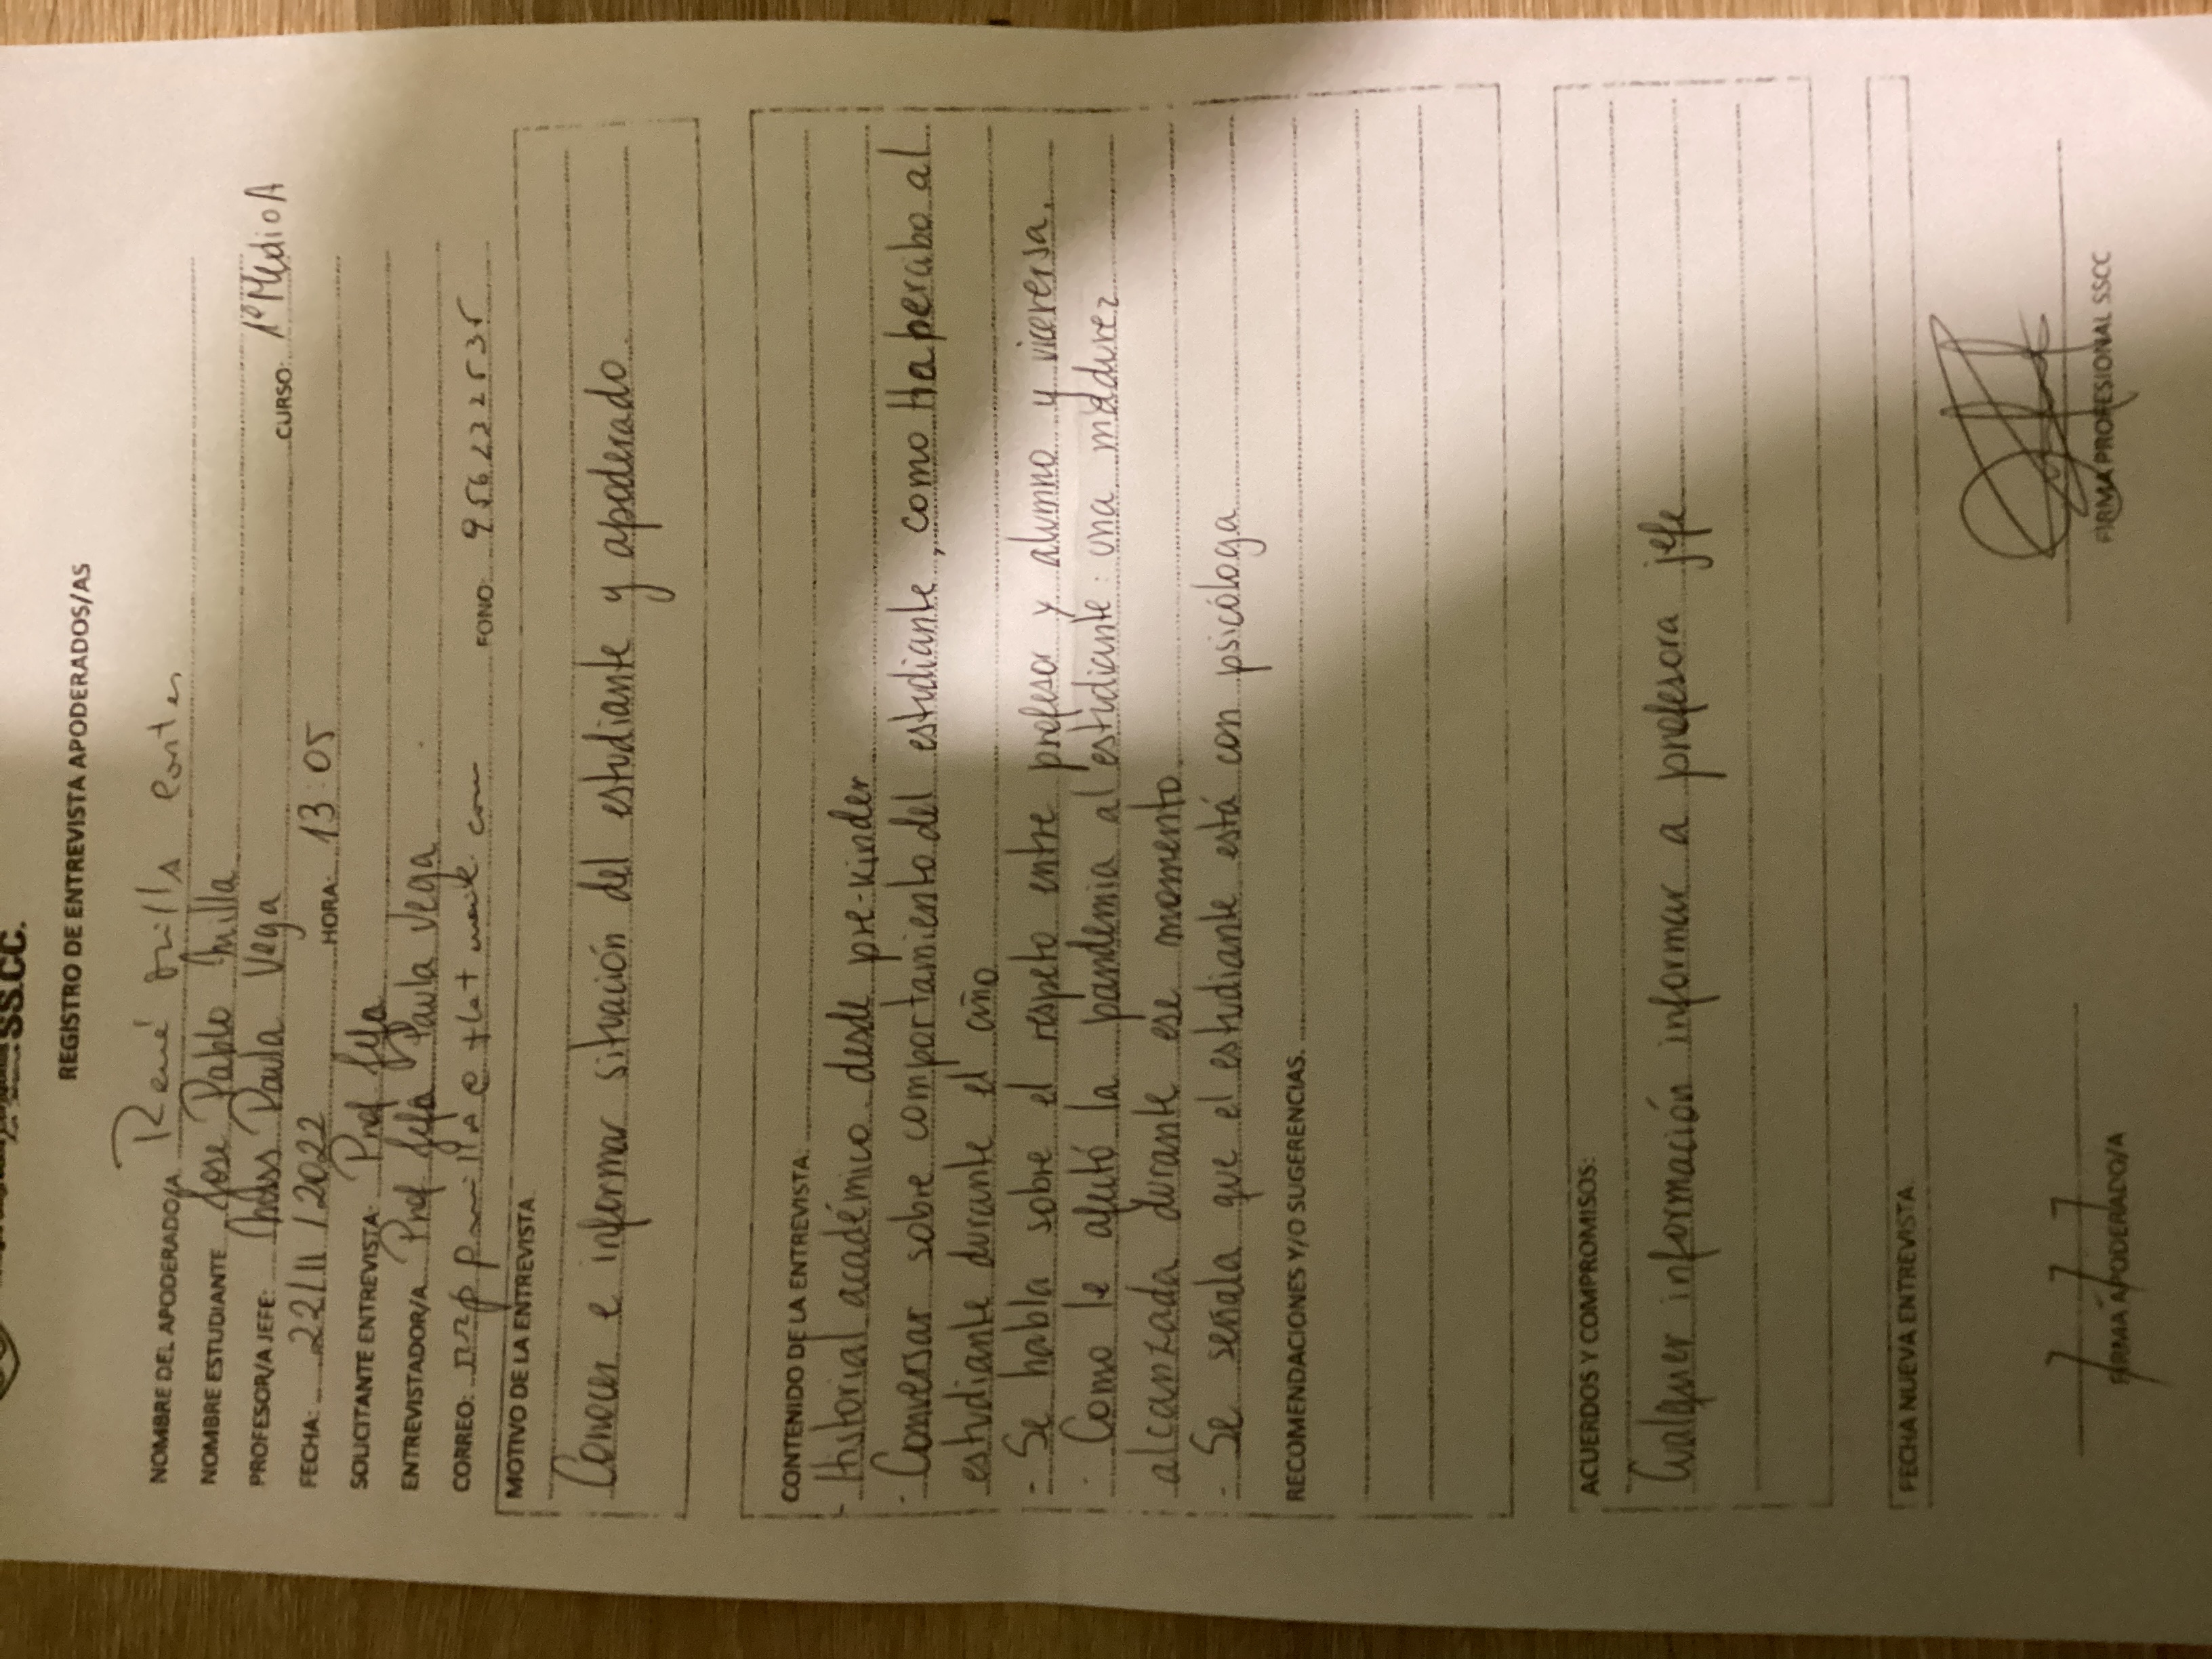 SS.CC.
REGISTRO DE ENTREVISTA APODERADOS/AS
NOMBRE DEL APODERADO/A René
NOMBRE ESTUDIANTE Jose Pablo Milla
PROFESOR/A JEFE: Paula Vega CURSO: 1º Medio A
FECHA: 22/11/2022 HORA: 13:05
SOLICITANTE ENTREVISTA: Prof Jefa
ENTREVISTADOR/A Prof Jefa Paula Vega
CORREO: FONO 956222535
MOTIVO DE LA ENTREVISTA
Conocer e informar situación del estudiante y apoderado.
CONTENIDO DE LA ENTREVISTA:
- Historial académico desde pre-kinder
- Conversar sobre comportamiento del estudiante, como Ha percibo al
estudiante durante el año
- Se habla sobre el respeto entre profesor y alumno y viceversa.
- Como le afectó la pandemia al estudiante: una madurez
alcanzada durante ese momento
- Se señala que el estudiante está con psicóloga
RECOMENDACIONES Y/O SUGERENCIAS.
ACUERDOS Y COMPROMISOS:
Cualquier información informar a profesora jefe
FECHA NUEVA ENTREVISTA
FIRMA APODERADO/A FIRMA PROFESIONAL SSCC